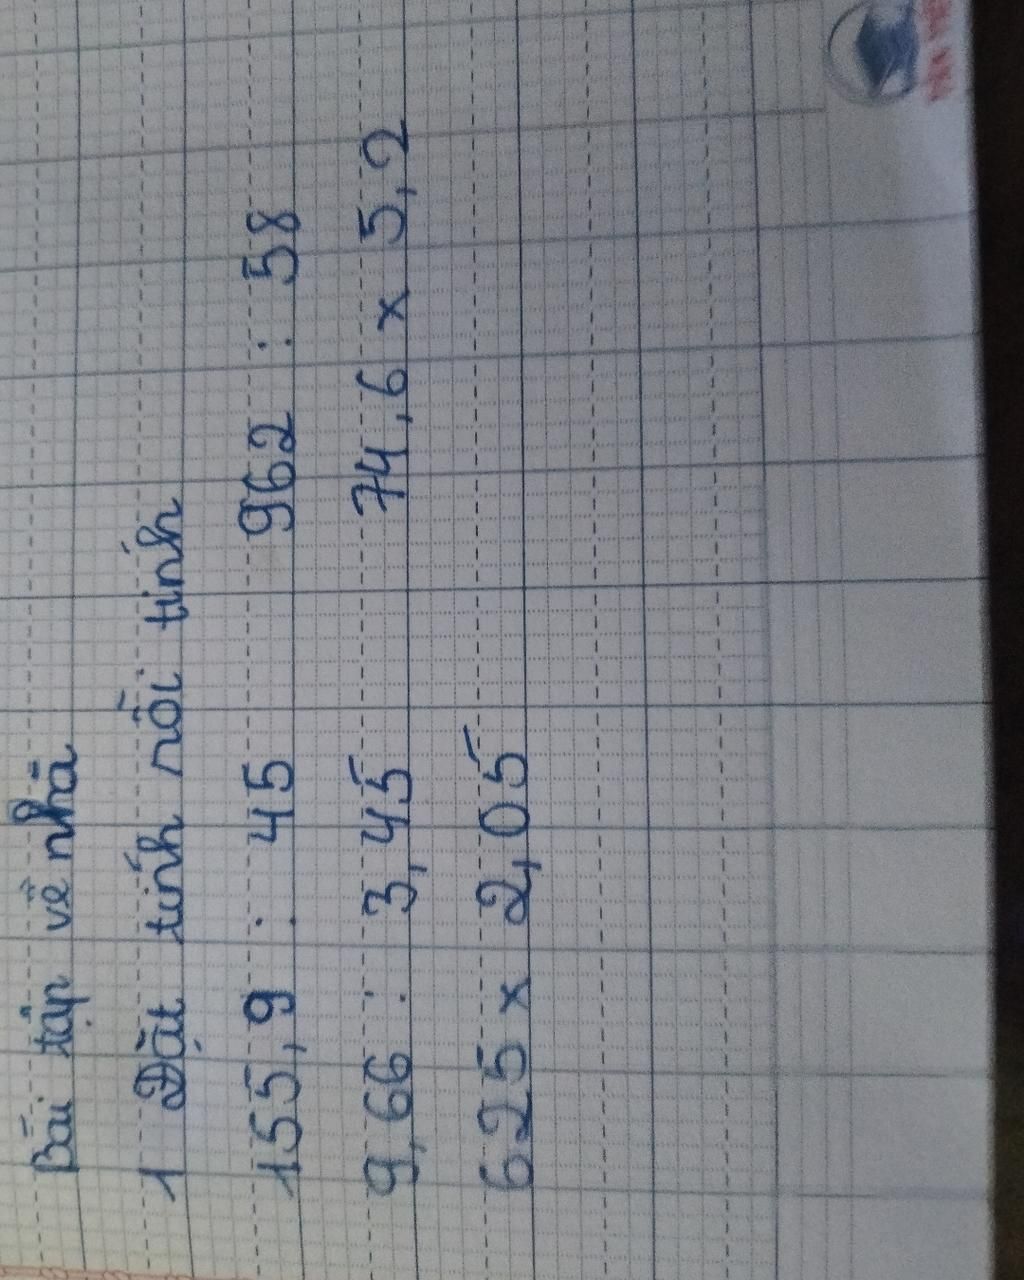 Bài tập về nhà
1 Đặt tính rồi tính
155,9 : 45 962 : 58
9,66 : 3,45 74,6 x 5,2
625 x 2,05